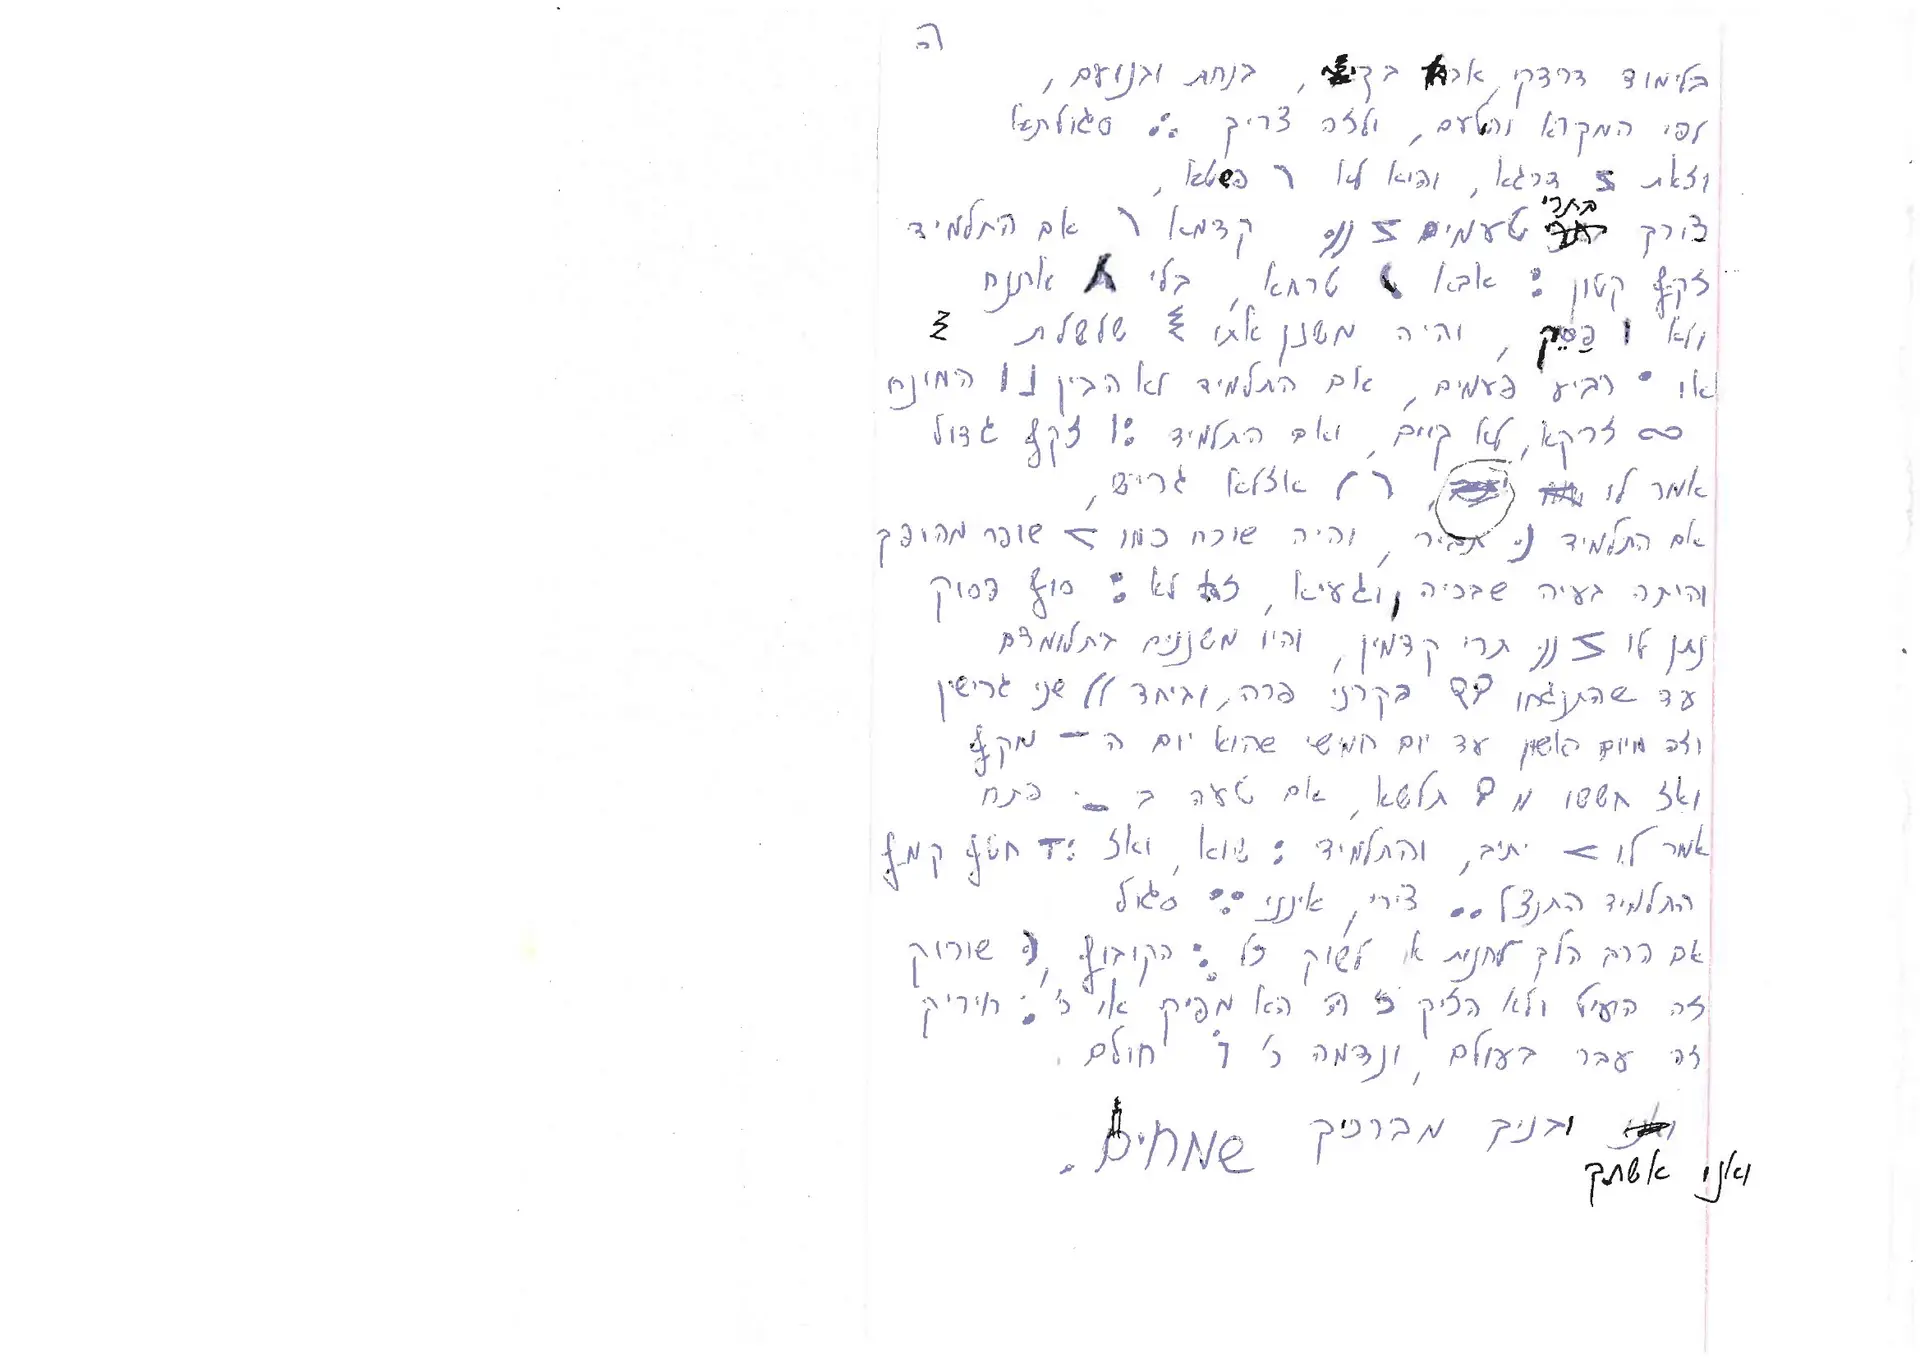 ה
בלימוד דרדקי, בנחת ובנועם,
לפי המקרא והטעם, ולזה צריך ֒ סגולתא
וזאת דרגא, והיא לא פשטא,
צורק בתרי טעמים קדמא אם התלמיד
זקף קטון : אבא טרחא, בלי אתנח
ולא ו פָּסֵיק, והיה משנן אתו שלשלת
או • רביע פעמים, אם התלמיד לא הבין המונח
∞ זרקא, לא קיים, ואם התלמיד זקף גדול
אמר לו אזלא גריש,
אם התלמיד תביר, והיה שורח כמו < שופר מהופך
והיתה בעיה שבכיה, וגעיא, לא : סוף פסוק
נתן לו תרי קדמין, והיו משננים בתלמודם
עד שהתנגחו בקרני פרה, וביחד שני גרישין
וזה מיום ראשון עד יום חמישי שהוא יום ה - מקף
ואז חששו מ תלשא, אם טעה ב - פתח
אמר לו < יתיב, והתלמיד : שוא, ואז חטף קמץ
התלמיד התנצל .. צירי, אינני סגול
אם הרב הלך לחנות או לשוק כל הקובוץ, שורוק
זה הועיל ולא הזיק הא מפיק או כ' : חיריק
זה עבר בעולם, ונדמה כ' וֹ חולם.
ובניך מברכיך שמחים.
ואני אשתך